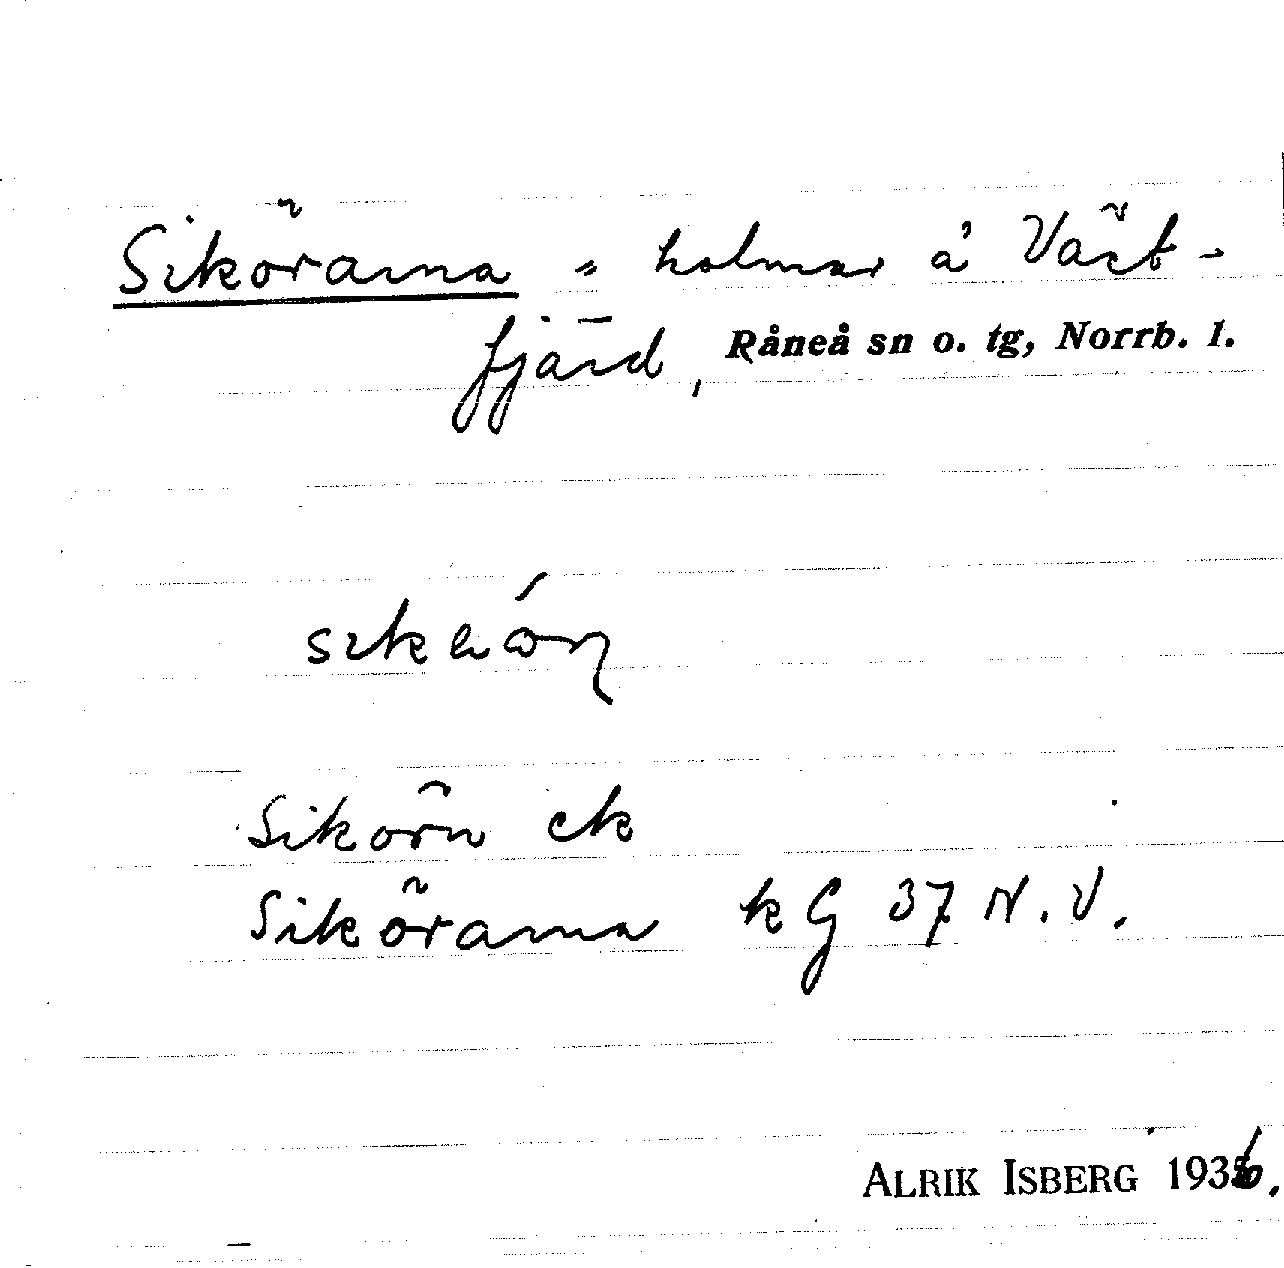 Sikörarna = holmar å Väst-
fjärd, Råneå sn o. tg, Norrb. l.
Sikörn ek
Sikörarna kG 37 N.V.
ALRIK ISBERG 1936.